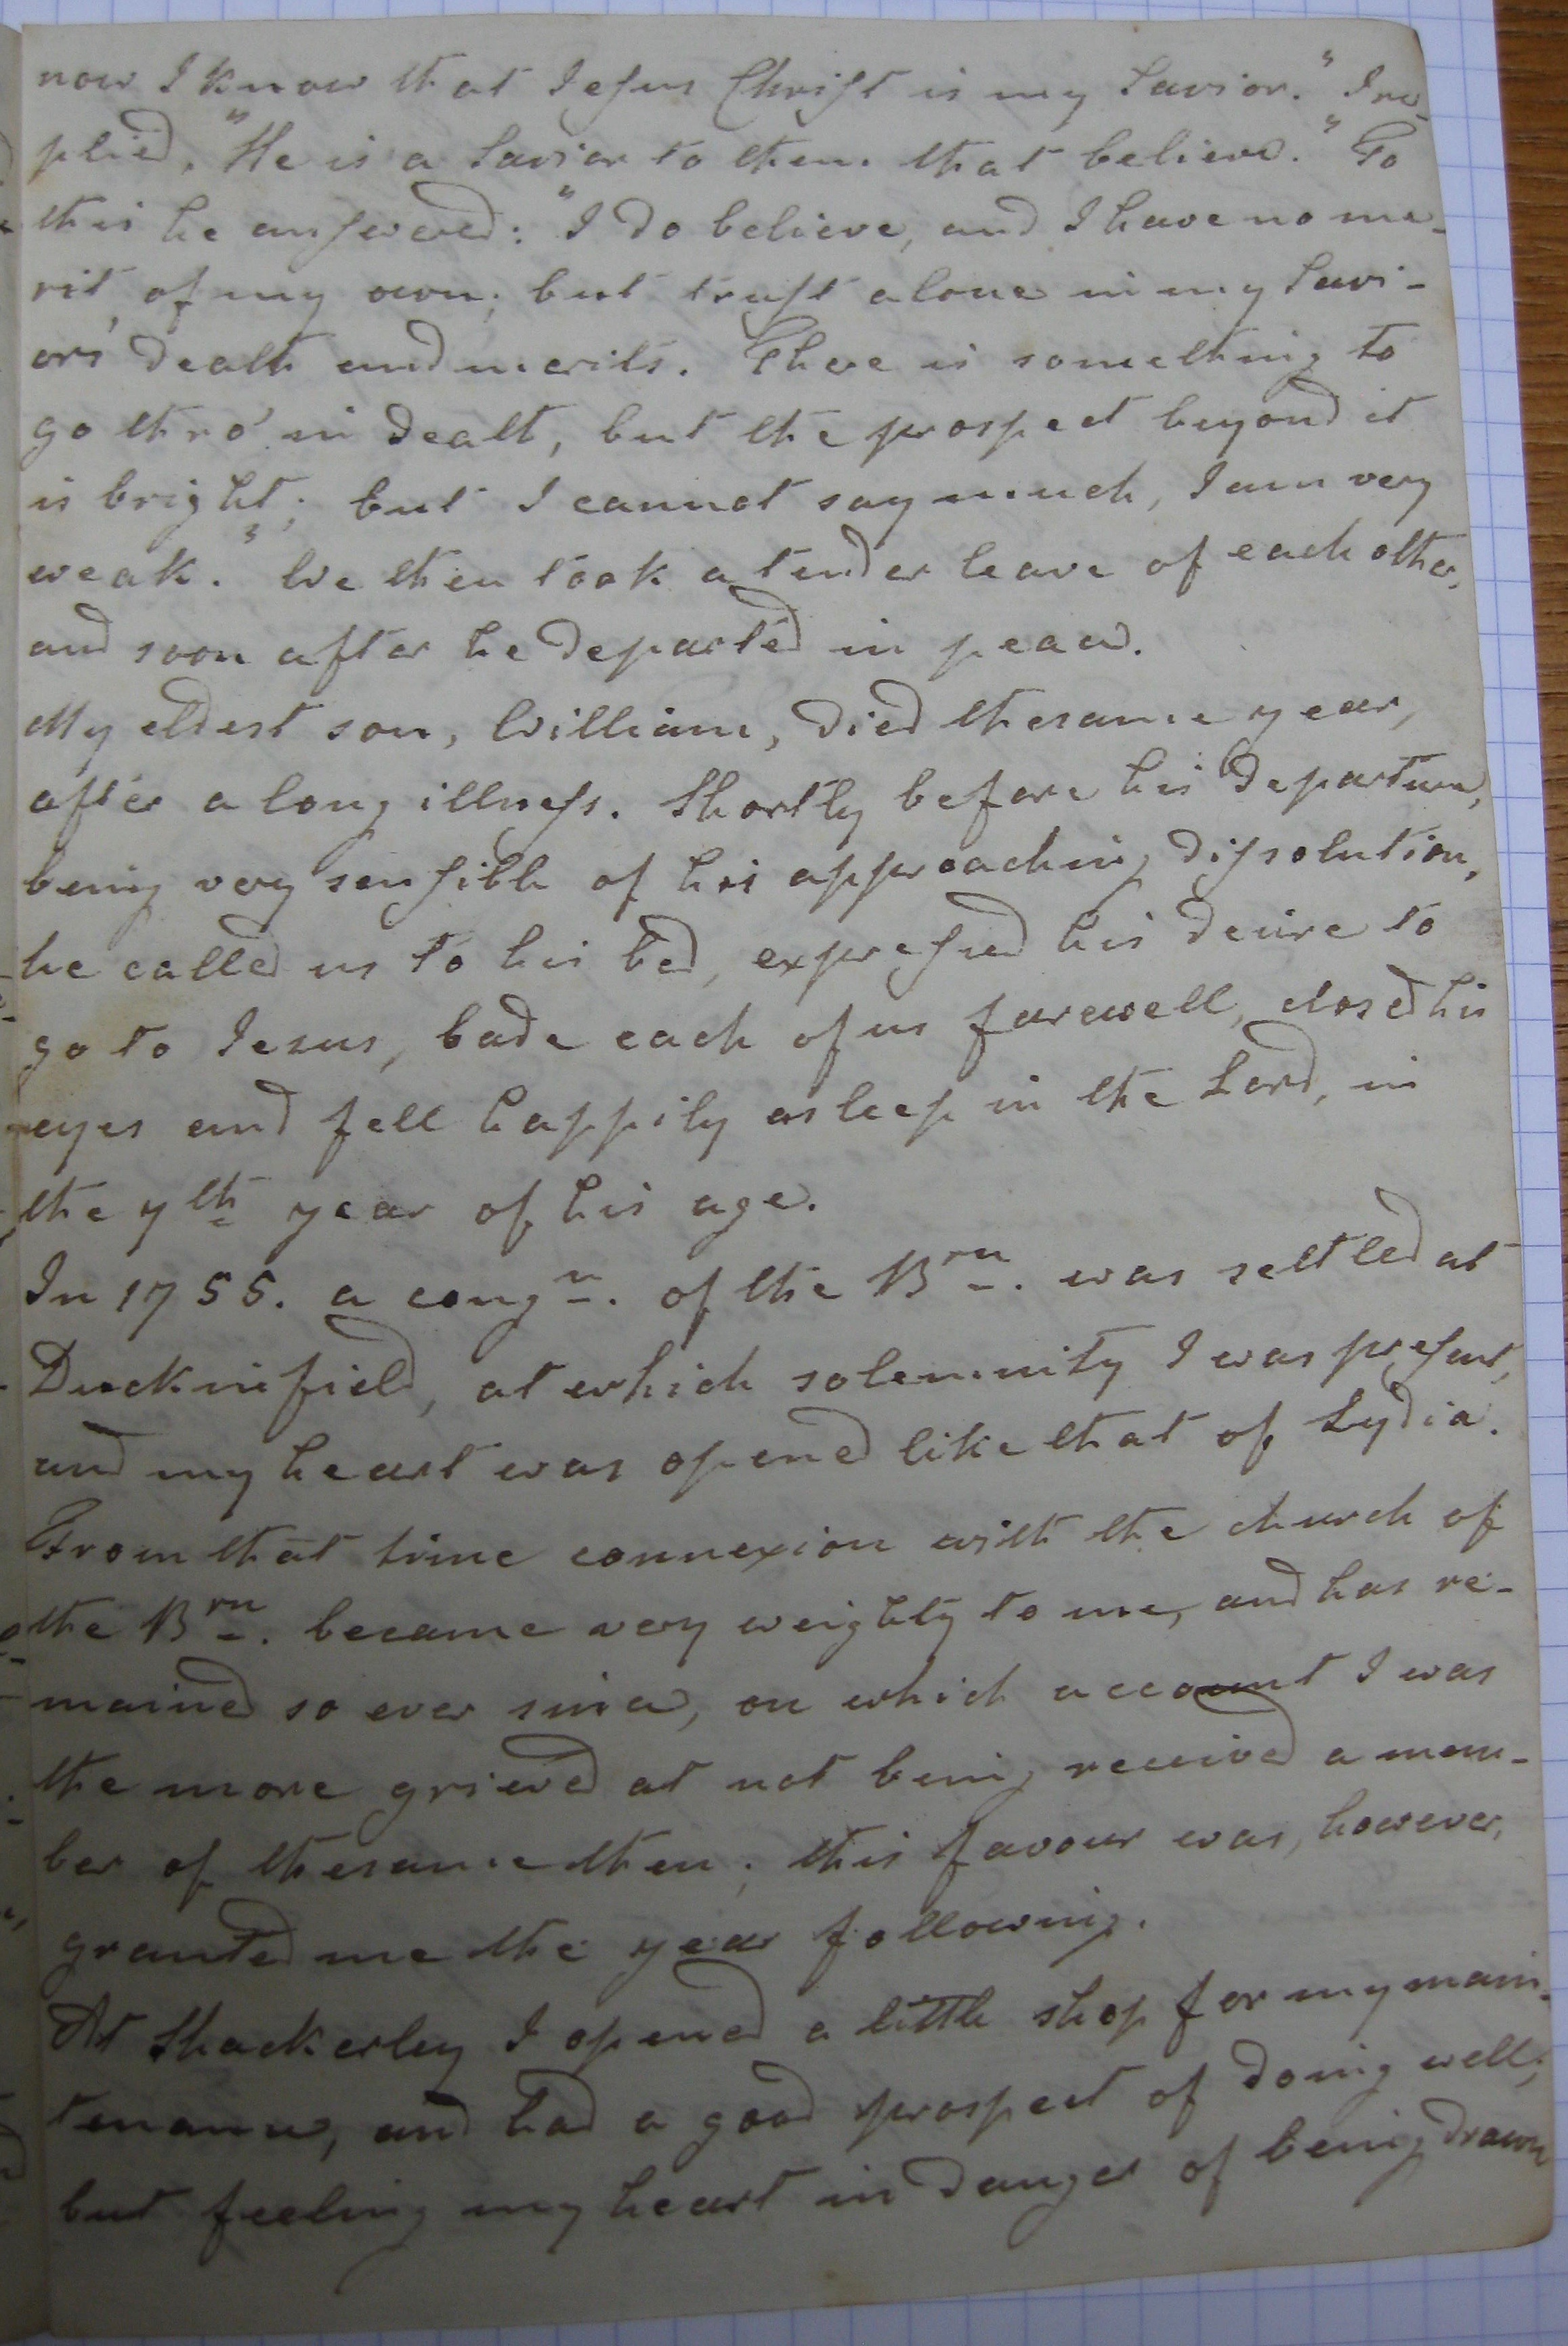 now I know that Jesus Christ is my Savior." I re-
plied, "He is a Savior to them that believe." To
this he answered: "I do believe, and I have no me-
rit of my own; but trust alone in my Savi-
ors' death and merits. There is something to
go thro' in death, but the prospect beyond it
is bright; but I cannot say much, I am very
weak." We then took a tender leave of each other,
and soon after he departed in peace.
My eldest son, William, died the same year,
after a long illness. Shortly before his departure,
being very sensible of his approaching dissolution,
he called us to his bed, expressed his desire to
go to Jesus, bade each of us farewell, closed his
eyes and fell happily asleep in the Lord, in
the 7th year of his age.
In 1755. a congn. of the Brn. was settled at
Duckinfield, at which solemnity I was present,
and my heart was opened like that of Lydia.
From that time connexion with the church of
the Brn. became very weighty to me, and has re-
mained so ever since, on which account I was
the more grieved at not being received a mem-
ber of the same then; this favour was, however,
granted me the year following.
At Shackerley I opened a little shop for my main-
tenance, and had a good prospect of doing well;
but feeling my heart in danger of being drawn